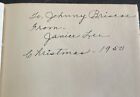 To Johnny Briscoe
From
Janice Lee
Christmas - 1950